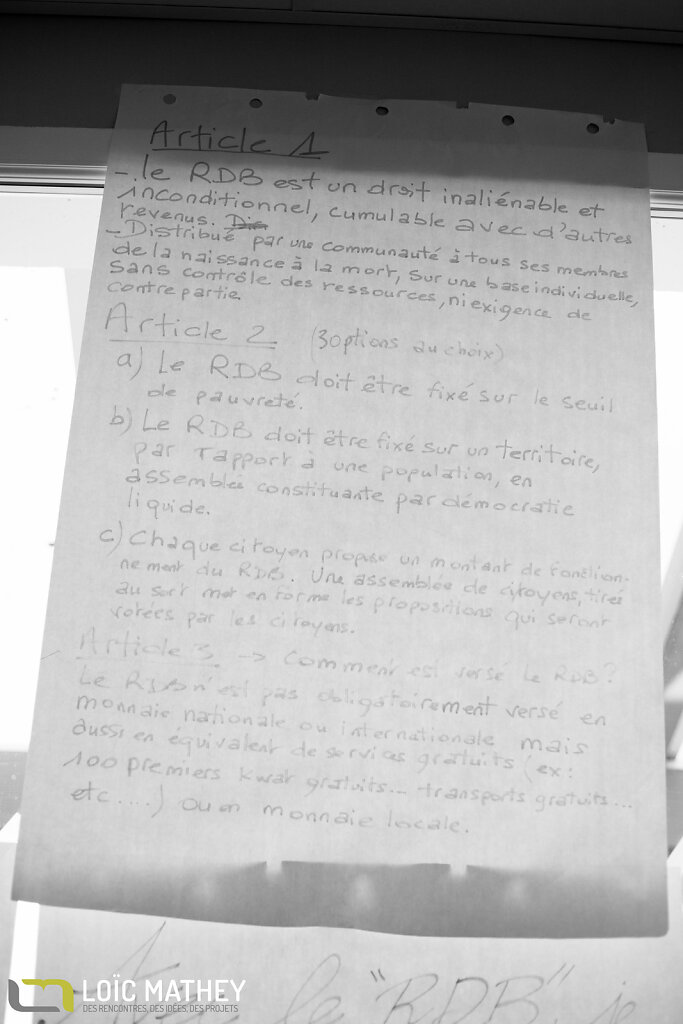 Article 1
- le RDB est un droit inaliénable et
inconditionnel, cumulable avec d'autres
revenus. Dis
- Distribué par une communauté à tous ses membres
de la naissance à la mort, sur une base individuelle,
sans contrôle des ressources, ni exigence de
contrepartie.
Article 2 (3 options au choix)
a) Le RDB doit être fixé sur le seuil
de pauvreté.
b) Le RDB doit être fixé sur un territoire,
par rapport à une population, en
assemblée constituante par démocratie
liquide.
c) Chaque citoyen propose un montant de fonction-
nement du RDB. Une assemblée de citoyens, tirés
au sort met en forme les propositions qui seront
votées par les citoyens.
Article 3 -> Comment est versé le RDB?
Le RDB n'est pas obligatoirement versé en
monnaie nationale ou internationale mais
aussi en équivalent de services gratuits (ex:
100 premiers kwat gratuits... transports gratuits....
etc....) ou en monnaie locale.
le "RDB", je
LOÏC MATHEY
DES RENCONTRES, DES IDÉES, DES PROJETS